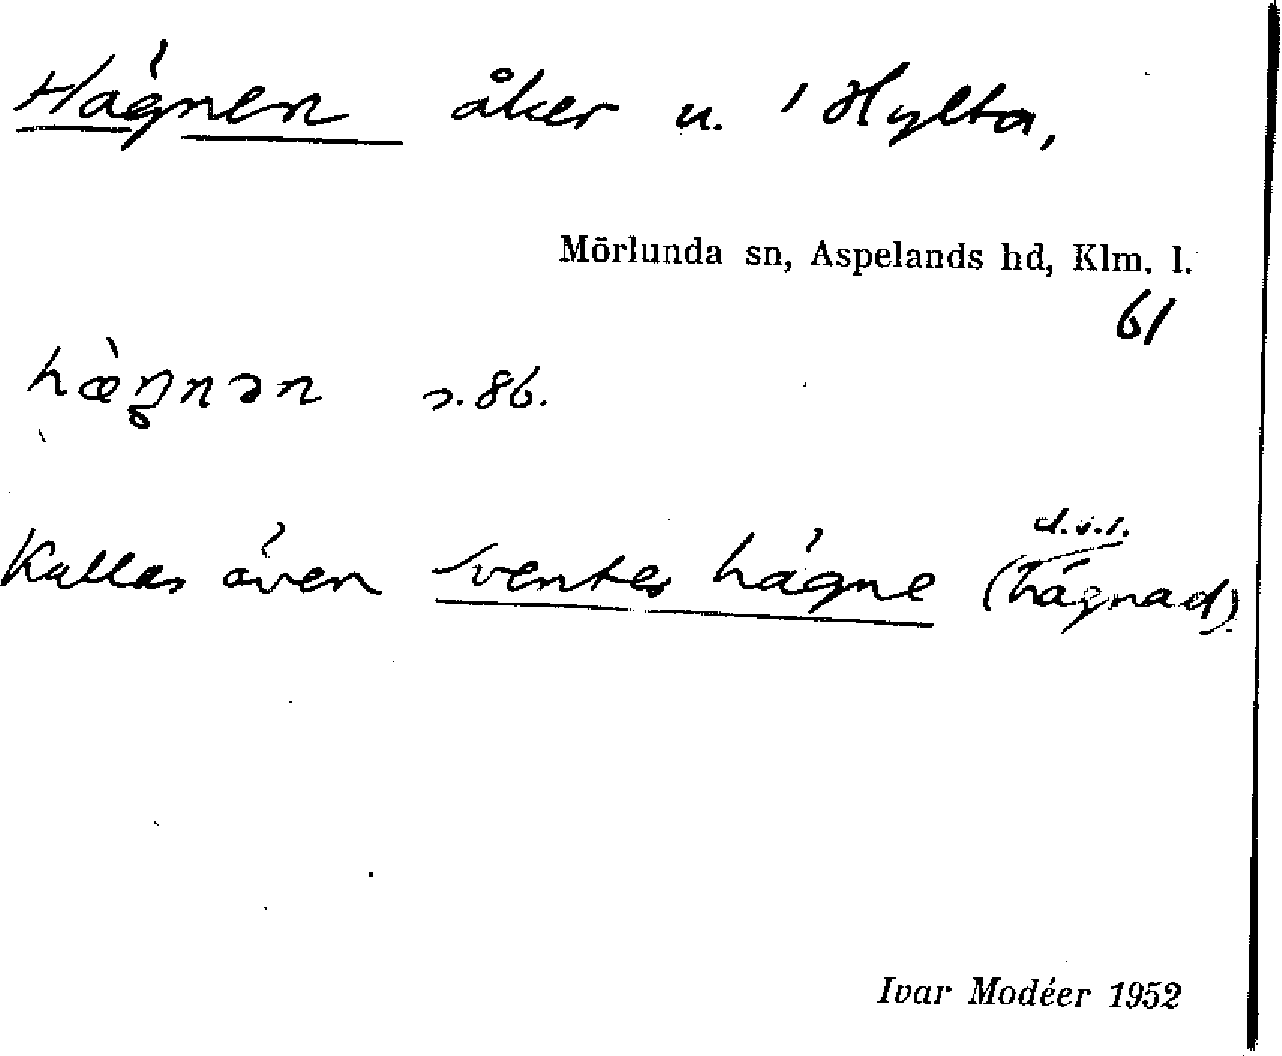 Hägnen åker u. ' Hylta,
Mörlunda sn, Aspelands hd, Klm. l.
61
hæ̀ŋnən s.86.
d.v.s.
Kallas även Sventes hägne (hägnad).
Ivar Modéer 1952